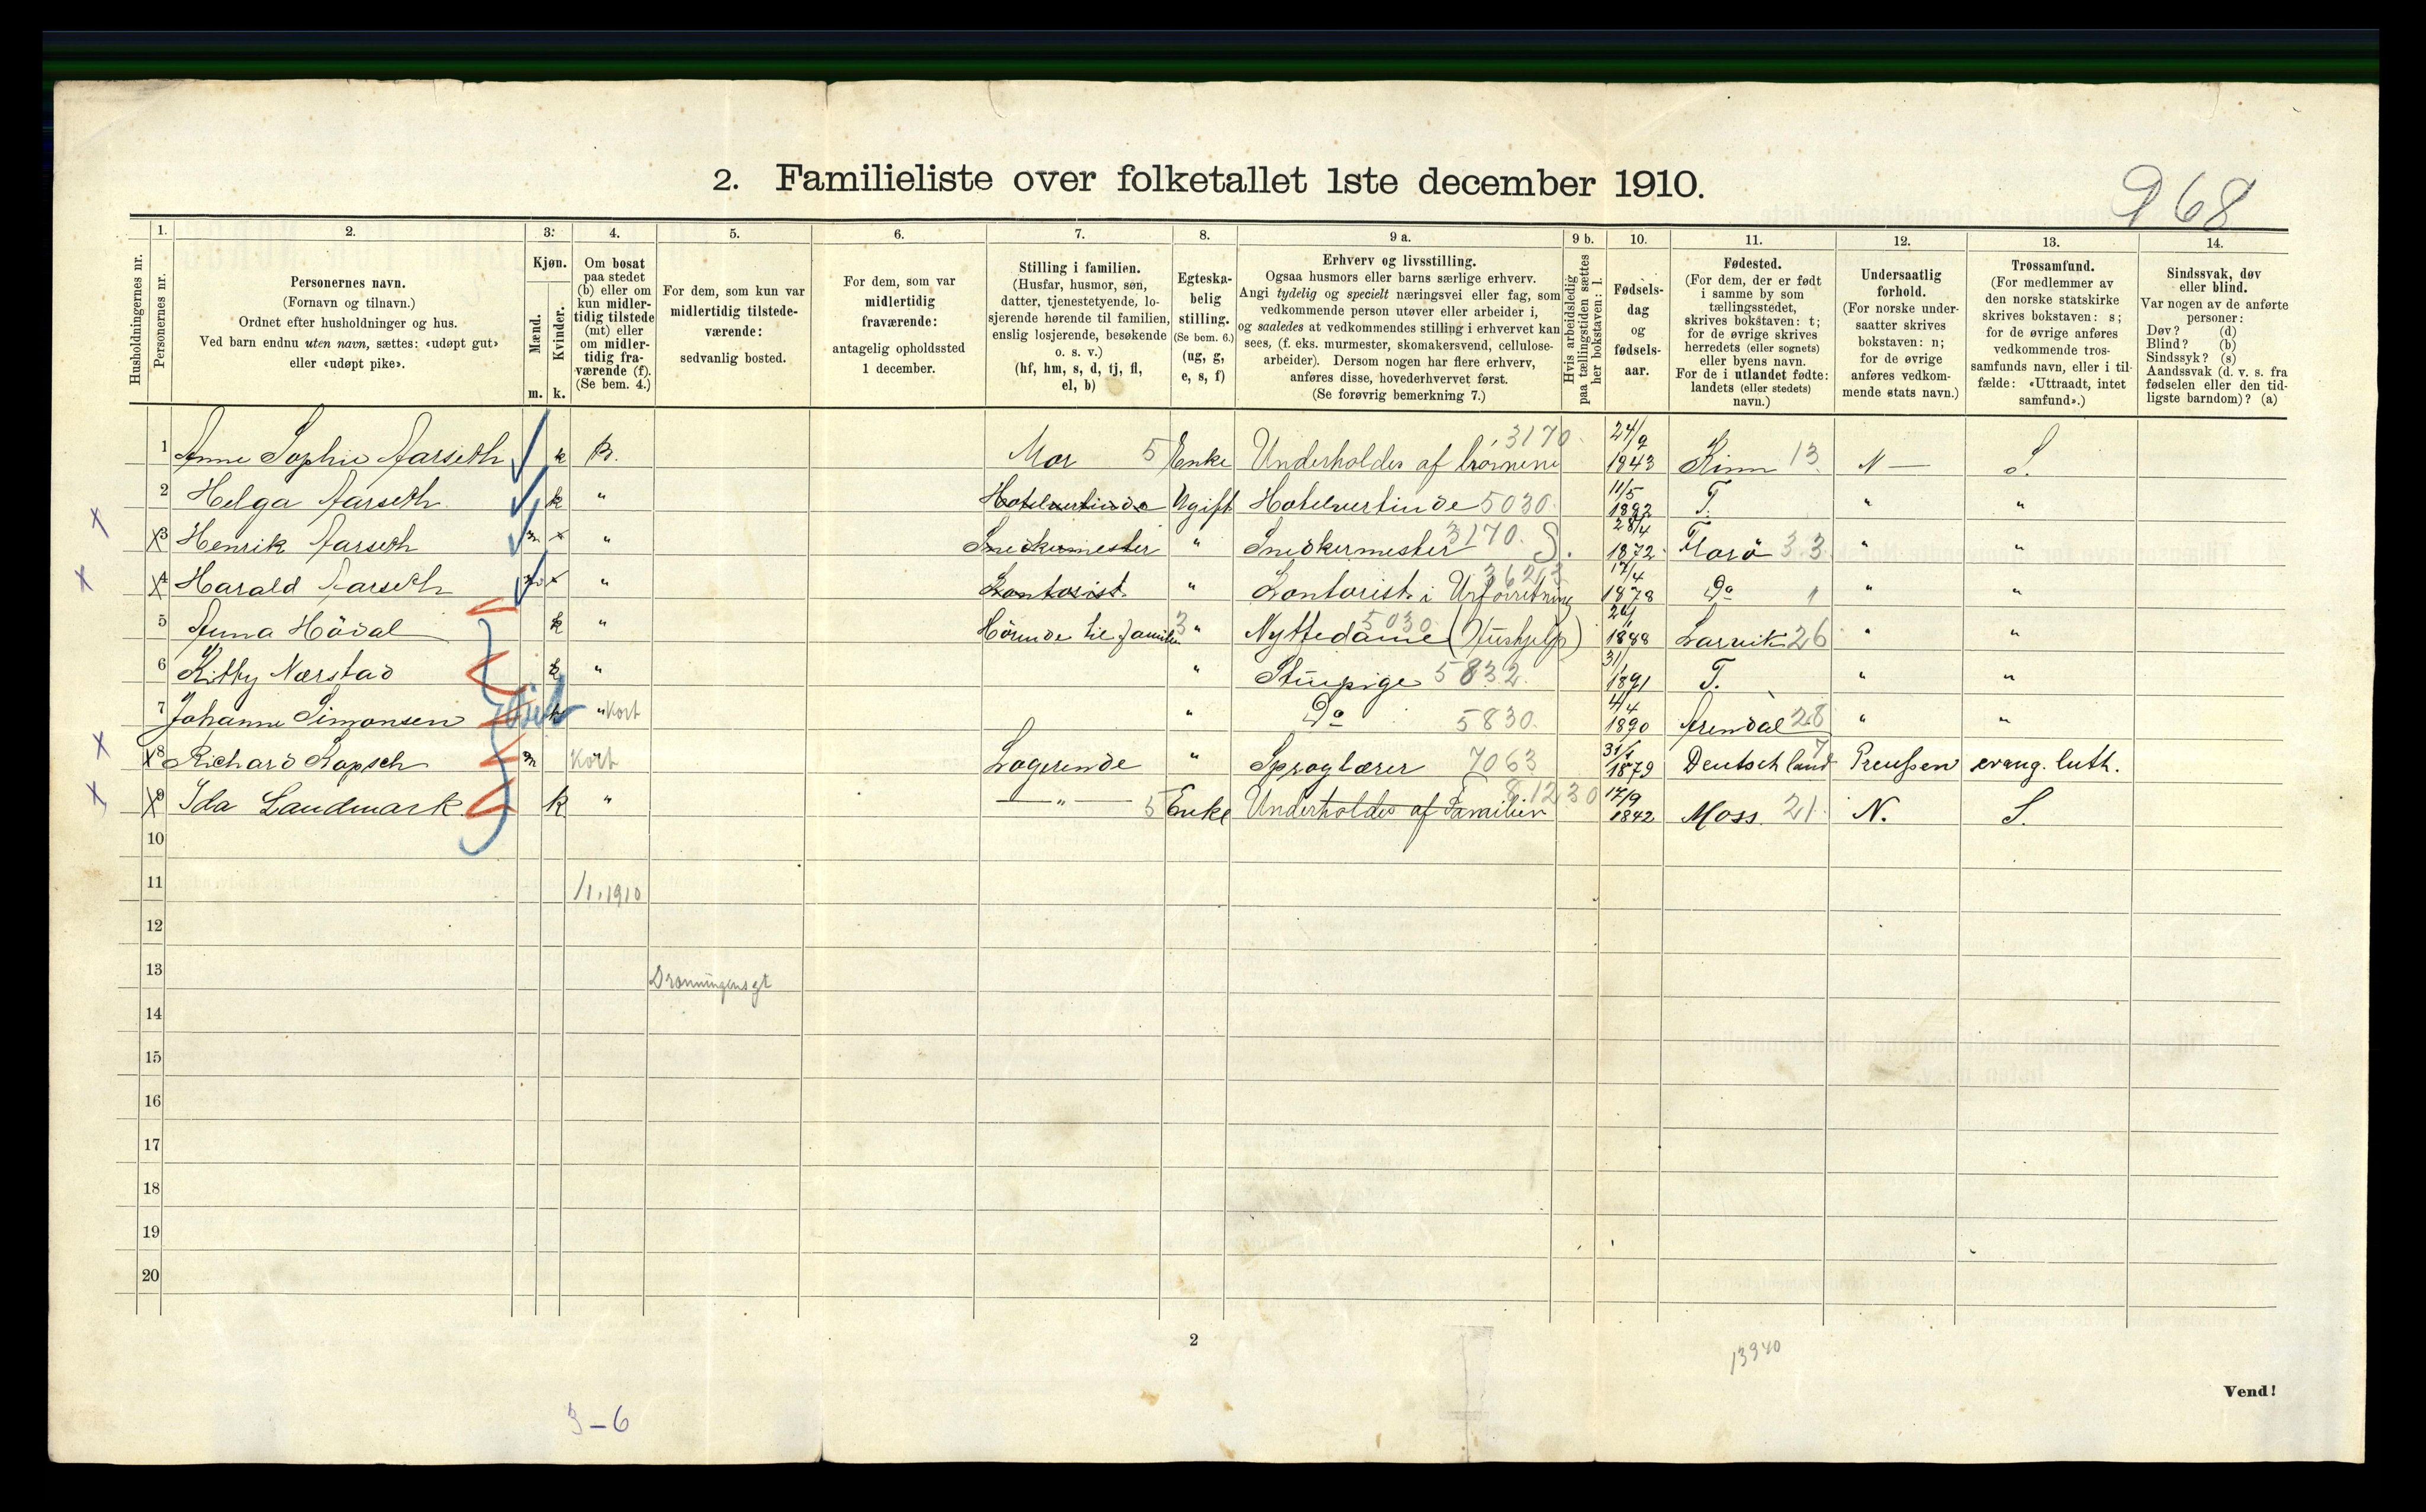 2. Familieliste over folketallet 1ste december 1910.
968
1. 2. 3. 4. 5. 6. 7. 8. 9 a. 9 b. 10. 11. 12. 13. 14.
Husholdningernes nr.
Personernes nr.
Personernes navn.
(Fornavn og tilnavn.)
Ordnet efter husholdninger og hus.
Ved barn endnu uten navn, sættes: «udøpt gut»
eller «udøpt pike».
Kjøn.
Mænd.
Kvinder.
m. k.
Om bosat
paa stedet
(b) eller om
kun midler-
tidig tilstede
(mt) eller
om midler-
tidig fra-
værende (f).
(Se bem. 4.)
For dem, som kun var
midlertidig tilstede-
værende:
sedvanlig bosted.
For dem, som var
midlertidig
fraværende:
antagelig opholdssted
1 december.
Stilling i familien.
(Husfar, husmor, søn,
datter, tjenestetyende, lo-
sjerende hørende til familien,
enslig losjerende, besøkende
o. s. v.)
(hf, hm, s, d, tj, fl,
el, b)
Egteska-
belig
stilling.
(Se bem. 6.)
(ug, g,
e, s, f)
Erhverv og livsstilling.
Ogsaa husmors eller barns særlige erhverv.
Angi tydelig og specielt næringsvei eller fag, som
vedkommende person utøver eller arbeider i,
og saaledes at vedkommendes stilling i erhvervet kan
sees, (f. eks. murmester, skomakersvend, cellulose-
arbeider). Dersom nogen har flere erhverv,
anføres disse, hovederhvervet først.
(Se forøvrig bemerkning 7.)
Hvis arbeidsledig
paa tællingstiden sættes
her bokstaven: l.
Fødsels-
dag
og
fødsels-
aar.
Fødested.
(For dem, der er født
i samme by som
tællingsstedet,
skrives bokstaven: t;
for de øvrige skrives
herredets (eller sognets)
eller byens navn.
For de i utlandet fødte:
landets (eller stedets)
navn.)
Undersaatlig
forhold.
(For norske under-
saatter skrives
bokstaven: n;
for de øvrige
anføres vedkom-
mende stats navn.)
Trossamfund.
(For medlemmer av
den norske statskirke
skrives bokstaven: s;
for de øvrige anføres
vedkommende tros-
samfunds navn, eller i til-
fælde: «Uttraadt, intet
samfund».)
Sindssvak, døv
eller blind.
Var nogen av de anførte
personer:
Døv? (d)
Blind? (b)
Sindssyk? (s)
Aandssvak (d. v. s. fra
fødselen eller den tid-
ligste barndom)? (a)
1 Anne Sophie Aarseth k B. Mor 5 Enke Underholdes af börnene 3170 24/9 1843 Kinn 13 N S.
2 Helga Aarseth k " Hotelvertinde Ugift Hotelvertinde 5030 11/5 1882 T. " "
x x3 Henrik Aarseth m " Snedkermester " Snedkermester 3170. S. 28/4 1872 Florö 33 " "
x x4 Harald Aarseth m " Kontorist " Kontorist i Urforretning 17/4 1878 Do " "
5 Anna Hödal k " Hörende til familie 3 " Nyttedame (Hushjelp) 5030 1888 Larvik 26 " "
6 Kitty Nærstad k " " Stuepige 5832 31/1 1891 T. " "
7 Johanne Simonsen k " Kort " Do 5830. 4/4 1890 Arendal 28 " "
x x8 Richard Kapsch m Kort Logerende " Sproglærer 7063 31/1 1879 Deutschland 7 Preußen evang. luth.
x x9 Ida Landmark k " " 5 Enke Underholdes af Familien 8 12 30 17/9 1842 Moss 21 N. S.
10
11 1/1.1910
12
13 Dronningensgt
14
15
16
17
18
19
20
2
13940
Vend!
3-6